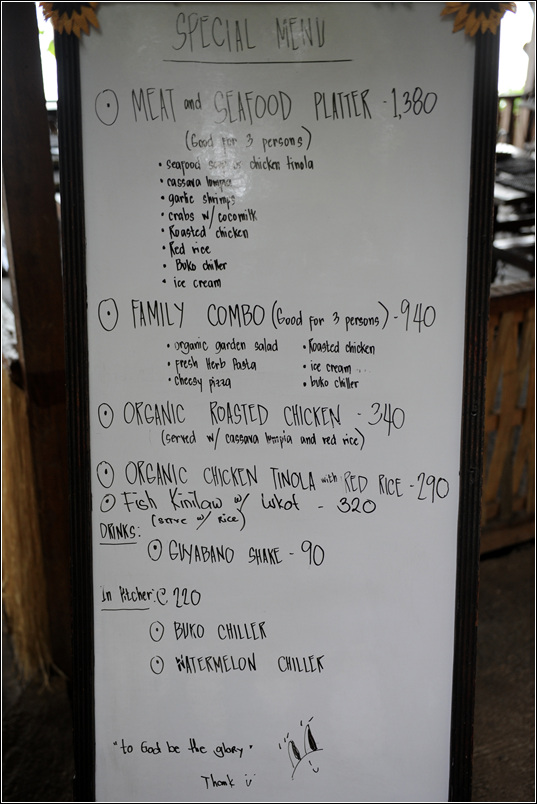 SPECIAL MENU
MEAT and SEAFOOD PLATTER - 1,380
(Good for 3 persons)
• seafood chicken tinola
• cassava lumpia
• garlic shrimps
• crabs w/ cocomilk
• Roasted chicken
• Red rice
• Buko chiller
• ice cream
FAMILY COMBO (Good for 3 persons) - 940
• organic garden salad
• fresh Herb Pasta
• cheesy pizza
• Roasted chicken
• ice cream
• buko chiller
ORGANIC ROASTED CHICKEN - 340
(served w/ cassava lumpia and red rice)
ORGANIC CHICKEN TINOLA with RED RICE - 290
Fish Kinilaw w/ Lukot - 320
(serve w/ rice)
DRINKS:
GUYABANO SHAKE - 90
In Pitcher: @ 220
BUKO CHILLER
WATERMELON CHILLER
"to God be the glory"
Thank U